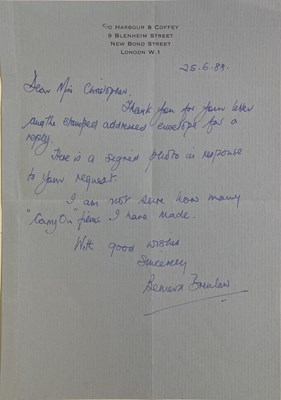 C/O HARBOUR & COFFEY
9 BLENHEIM STREET
NEW BOND STREET
LONDON W.1
25.6.83.
Dear Miss Christopher,
Thank you for your letter
and the stamped addressed envelope for a
reply.
Here is a signed photo in response
to your request.
I am not sure how many
"Carry On" films I have made.
With good wishes
Sincerely
Bernard